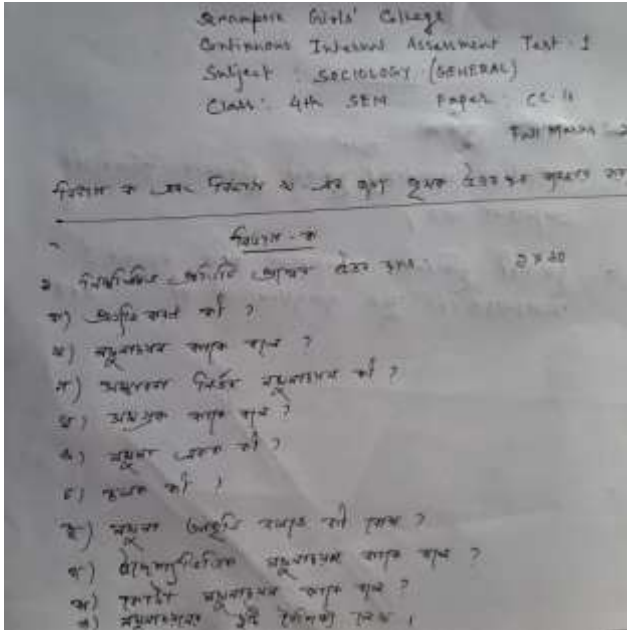 Serampore Girls' College
Continuous Internal Assessment Test : 1
Subject : SOCIOLOGY (GENERAL)
Class : 4th SEM Paper : CC
Full Marks :
বিভাগ ক এবং বিভাগ খ এর জন্য পৃথক উত্তর পত্র
বিভাগ - ক
১. নিম্নলিখিত প্রতিটি প্রশ্নের উত্তর দাও : ১ × ১০
ক) কী ?
খ) নমুনাচয়ন কাকে বলে ?
গ) নির্ভর নমুনাচয়ন কী ?
ঘ) কাকে বলে ?
ঙ) নমুনা একক কী ?
চ) কী ?
ছ) নমুনা বলতে কী বোঝ ?
জ) উদ্দেশ্যভিত্তিক নমুনাচয়ন কাকে বলে ?
ঝ) কোটা নমুনাচয়ন কাকে বলে ?
নমুনাচয়নের দুটি বৈশিষ্ট্য লেখ ।